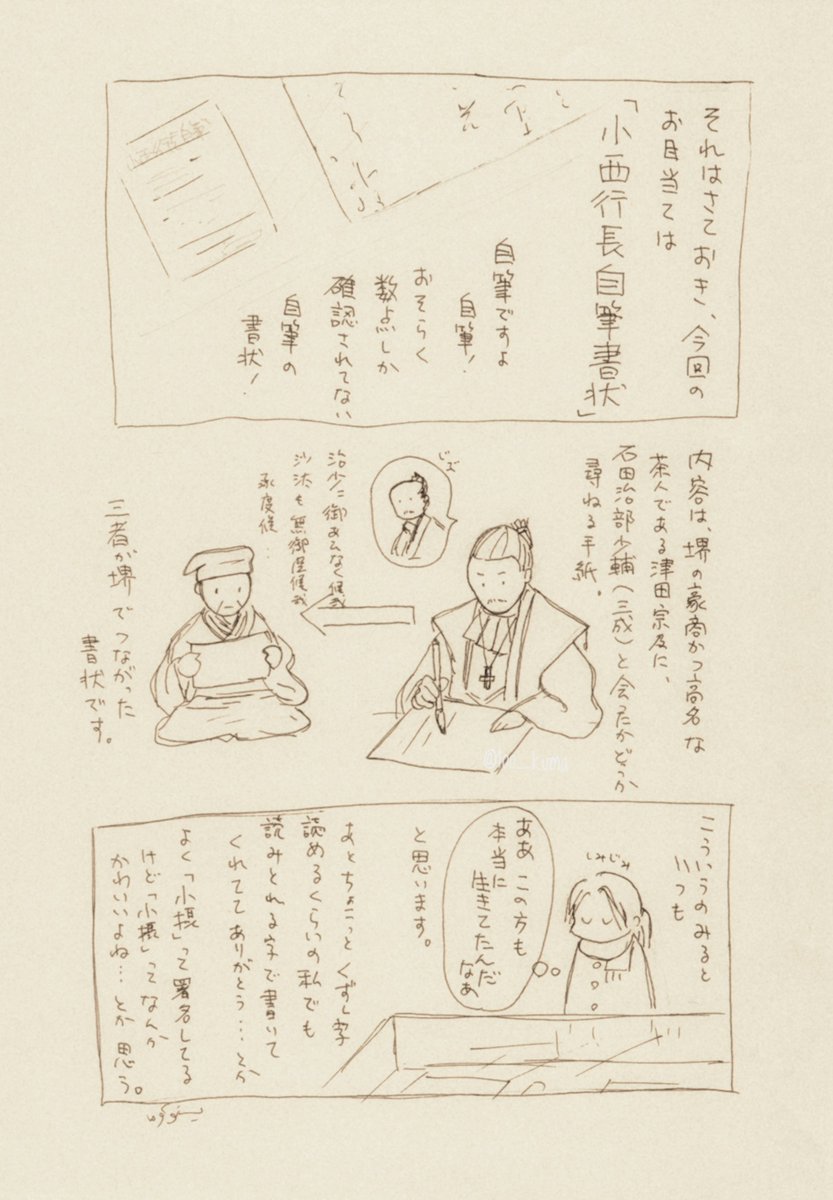 それはさておき、今回の
お目当ては
「小西行長自筆書状」
自筆ですよ
自筆！
おそらく
数点しか
確認されてない
自筆の
書状！
内容は、堺の豪商かつ高名な
茶人である津田宗及に、
石田治部少輔（三成）と会ったかどうか
尋ねる手紙。
じぶ
治少ニ御あひなく候哉
沙汰も無御座候哉
承度候…
三者が堺でつながった
書状です。
こういうのみると
いつも
しみじみ
ああ この方も
本当に
生きてたんだ
なぁ
と思います。
あとちょこっとくずし字
読めるくらいの私でも
読みとれる字で書いて
くれててありがとう…とか
よく「小摂」って署名してる
けど「小摂」ってなんか
かわいいよね…とか思う。